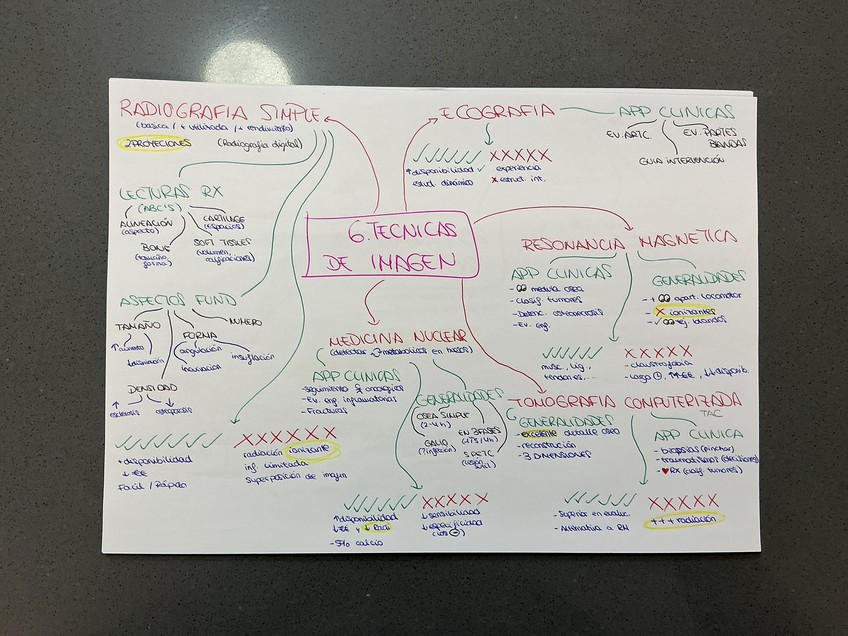 6. TECNICAS
DE IMAGEN
RADIOGRAFIA SIMPLE
(basica / + utilizada / + rendimiento)
2 PROYECIONES (Radiografia digital)
LECTURAS RX
(ABC'S)
ALINEACIÓN
(aspecto)
BONE
(tamaño,
forma)
CARTILAGE
(espacios)
SOFT TISSUES
(volumen,
calcificaciones)
ASPECTOS FUND
TAMAÑO
↑ aumento
↓ disminución
FORMA
angulación
incurvación
insuflación
NUMERO
DENSIDAD
↑ esclerosis
↓ osteoporosis
✓✓✓✓✓✓
+ disponibilidad
↓ €€
Facil / Rápido
XXXXXX
radiación ionizante
inf limitada
Superposición de imagen
ECOGRAFIA
✓✓✓✓✓✓
↑ disponibilidad
estud. dinámico
XXXXX
experiencia
x estruct. int.
APP CLINICAS
EV. ARTC.
GUIA INTERVENCIÓN
EV. PARTES
BLANDAS
RESONANCIA MAGNETICA
APP CLINICAS
- medula osea
- Clasif. tumores
- Detenc. osteonecrosis
- Ev. enf.
GENERALIDADES
- + apart. locomotor
- X ionizantes
- tej blandos
✓✓✓✓✓
musc, lig,
tendones...
XXXXX
- claustrofobia
- Largo, ↑↑€€, ↓↓disponib.
MEDICINA NUCLEAR
(detectar metabolicas en hueso)
APP CLINICAS
- seguimiento oncologico
- Ev. enf inflamatorias
- Fracturas
GENERALIDADES
OSEA SIMPLE
(2-4h)
GALIO
(? infección)
EN 3 FASES
SPECT
(lesión
✓✓✓✓✓✓
↑ disponibilidad
↓ €€ y ↓ Radi
- 5% calcio
XXXXX
↓ sensibilidad
↓ especificidad
TOMOGRAFIA COMPUTERIZADA
TAC
GENERALIDADES
- excelente detalle oseo
- reconstrución
- 3 DIMENSIONES
APP CLINICA
- biopsias (pinchar)
- traumatismos (decisiones)
- ♥ RX (clasif. tumores)
✓✓✓✓✓✓
- Superior en evaluc.
- Alternativa a RM
XXXXX
+++ radiación